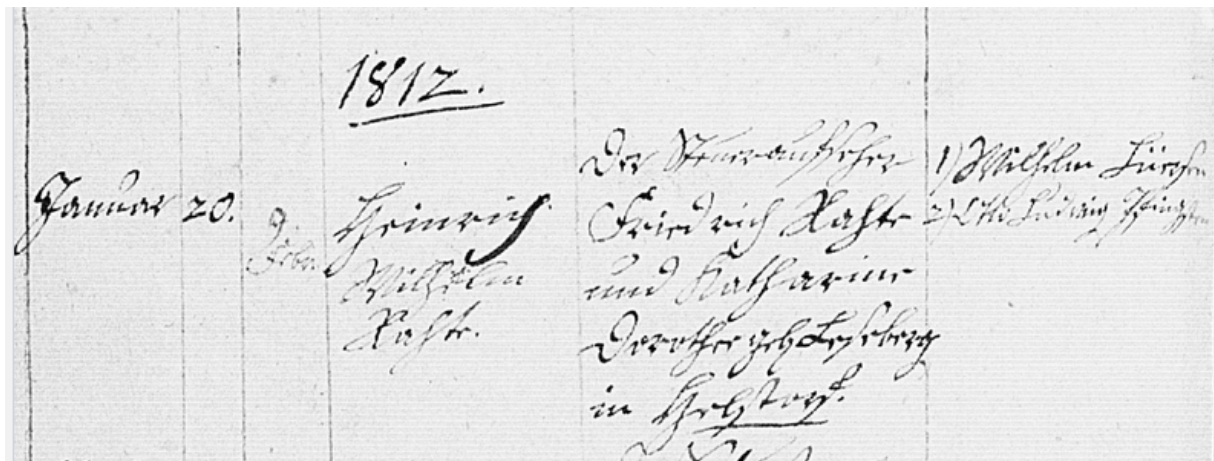 1812.
Januar 20.
Febr.
Heinrich
Wilhelm
Rahte.
Der Steueraufseher
Friedrich Rahte
und Katharine
Dorothee geb. Leseberg
in Helstorf.
1) Wilhelm
2) Otto Ludwig Pfingsten